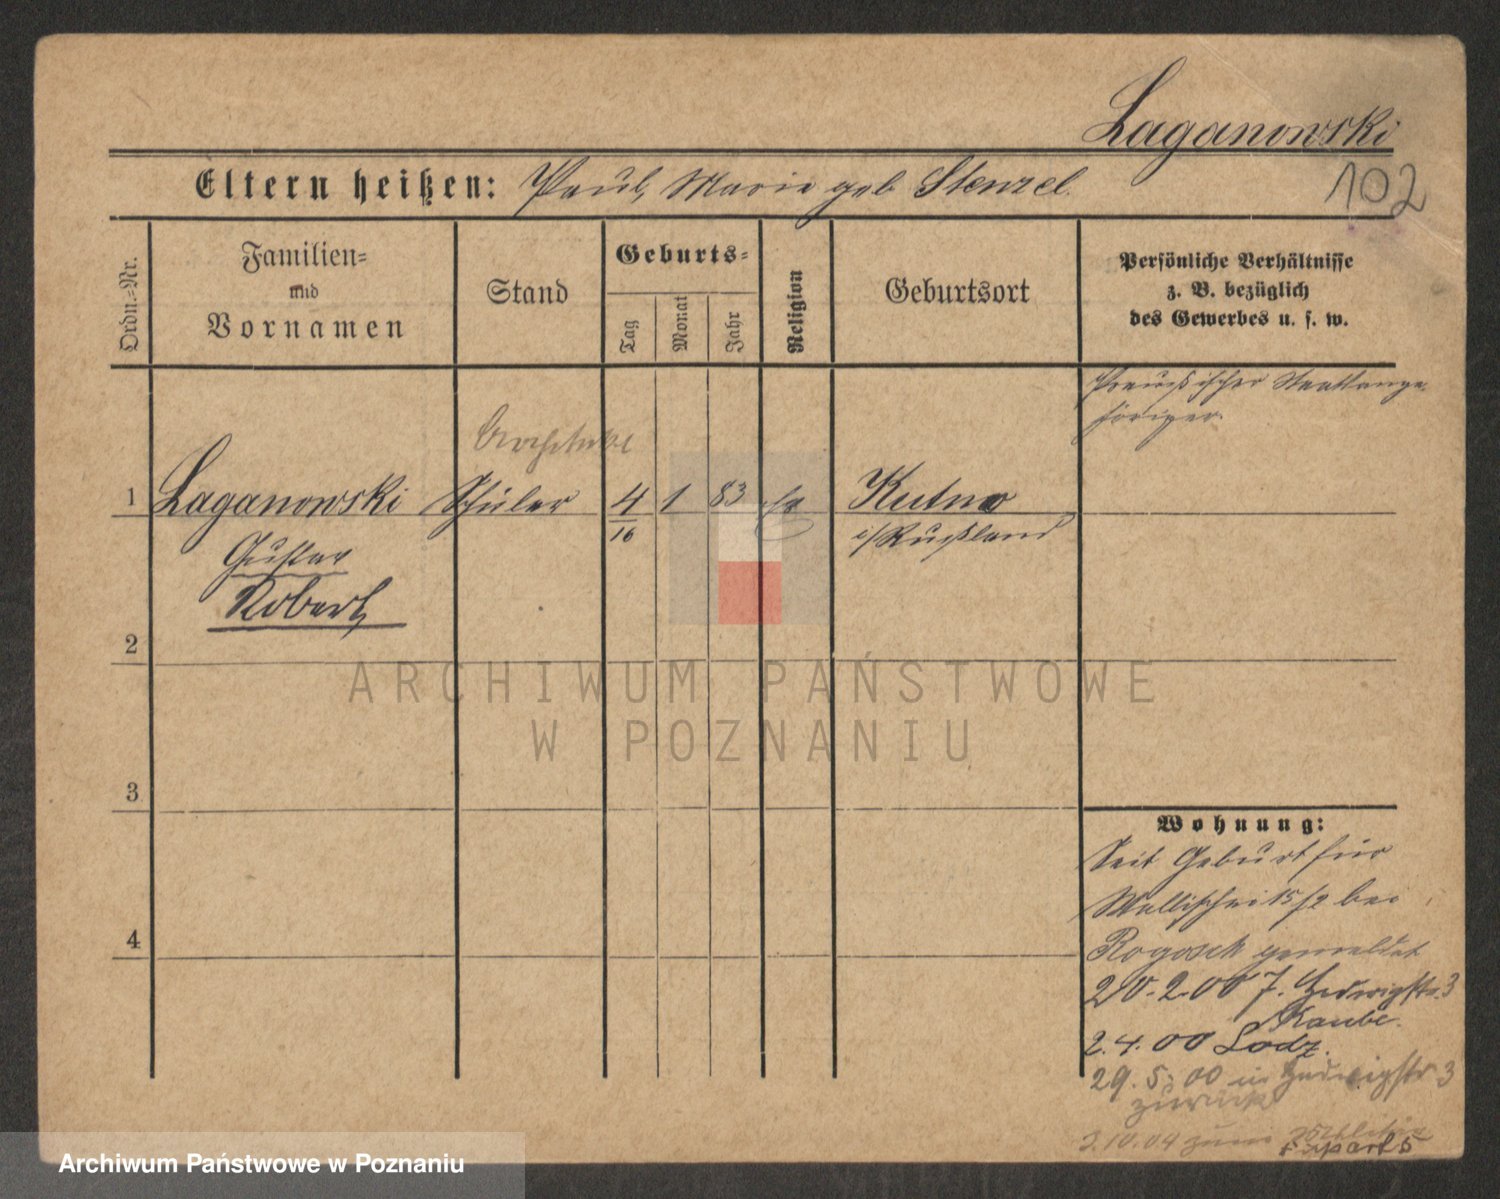 Laganowski
102
Eltern heißen: Paul, Marie geb Stenzel
Ordn.=Nr.
Familien=
und
Vornamen
Stand
Geburts=
Tag
Monat
Jahr
Religion
Geburtsort
Persönliche Verhältnisse
z. B. bezüglich
des Gewerbes u. s. w.
Preußischer Staatsange-
höriger.
1 Laganowski Schüler 4 1 83 Kutno
16
i/Rußland
Gustav
Robert
2
3
4
Wohnung:
Seit Geburt hier
Wallischei 15/2 bei
Rogosch gemeldet
20.2.00 J. Hedwigstr. 3
Kaube.
2.4.00 Lodz.
29.5.00 in Hedwigstr. 3
zurück
3.10.04 zum
ARCHIWUM PAŃSTWOWE
W POZNANIU
Archiwum Państwowe w Poznaniu